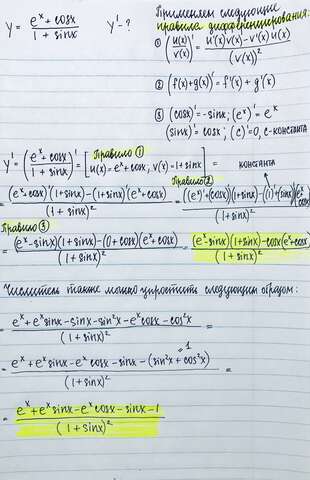 y = (e^x + cosx)/(1 + sinx)   y' - ?
Применяем следующие
правила дифференцирования:
① (u(x)/v(x))' = (u'(x)v(x) - v'(x)u(x))/(v(x))²
② (f(x)+g(x))' = f'(x) + g'(x)
③ (cosx)' = -sinx; (e^x)' = e^x
(sinx)' = cosx; (c)' = 0, c-константа
y' = ((e^x + cosx)/(1 + sinx))' = [Правило ① u(x) = e^x + cosx, v(x) = 1 + sinx] =
константа
= ((e^x + cosx)'(1+sinx) - (1+sinx)'(e^x + cosx))/(1 + sinx)² = Правило ② (((e^x)' + (cosx)')(1+sinx) - ((1)' + (sinx)')(e^x + cosx))/(1+sinx)² =
Правило ③
= ((e^x - sinx)(1+sinx) - (0 + cosx)(e^x + cosx))/(1 + sinx)² = ((e^x - sinx)(1+sinx) - cosx(e^x + cosx))/(1 + sinx)²
Числитель также можно упростить следующим образом:
(e^x + e^x sinx - sinx - sin²x - e^x cosx - cos²x)/(1 + sinx)² =
= (e^x + e^x sinx - e^x cosx - sinx - (sin²x + cos²x))/(1 + sinx)² =
= 1
= (e^x + e^x sinx - e^x cosx - sinx - 1)/(1 + sinx)²